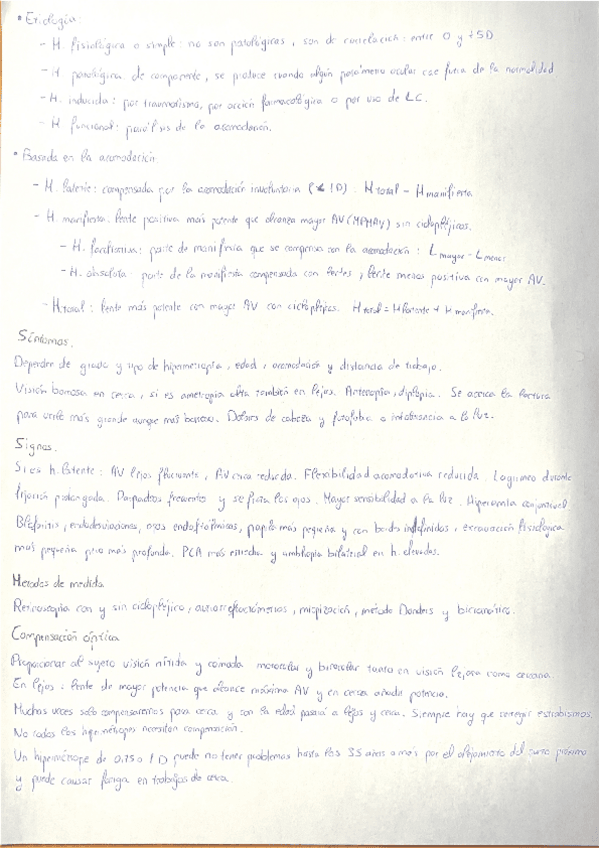 • Etiología:
- H. fisiológica o simple: no son patológicas, son de correlación: entre 0 y +5D
- H patológica. de componente, se produce cuando algún parámetro ocular cae fuera de la normalidad
- H. inducida: por traumatismo, por acción farmacológica o por uso de LC.
- H. funcional: parálisis de la acomodación.
• Basada en la acomodación:
- H. latente: compensada por la acomodación involuntaria (1D). Htotal - Hmanifiesta
- H. manifiesta. lente positiva más potente que alcanza mayor AV (MPMAV) sin ciclopléjicos.
- H. facultativa: parte de manifiesta que se compensa con la acomodación: Lmayor - Lmenor
- H. absoluta: parte de la manifiesta compensada con lentes, lente menos positiva con mayor AV.
- Htotal: lente más potente con mayor AV con ciclopléjicos. Htotal = Hlatente + Hmanifiesta.
Síntomas.
Dependen de grado y tipo de hipermetropía, edad, acomodación y distancia de trabajo.
Visión borrosa en cerca, si es ametropía alta también en lejos. Astenopia, diplopia. Se acerca la lectura
para verlo más grande aunque más borroso. Dolores de cabeza y fotofobia o intolerancia a la luz.
Signos.
Si es h. latente: AV lejos fluctuante, AV cerca reducida. Flexibilidad acomodativa reducida. Lagrimeo durante
fijación prolongada. Parpadeo frecuente y se frota los ojos. Mayor sensibilidad a la luz. Hiperemia conjuntival
Blefaritis, endodesviaciones, ojos endoftálmicos, papila más pequeña y con bordes indefinidos, excavación fisiológica
más pequeña pero más profunda. PCA más estrecha y ambliopía bilateral en h. elevadas.
Metodos de medida
Retinoscopia con y sin ciclopléjico, autorrefractómetros, miopización, método Donders y bicianómico.
Compensación óptica
Proporcionar al sujeto visión nítida y comoda monocular y binocular tanto en visión lejana como cercana.
En lejos: lente de mayor potencia que alcance máxima AV y en cerca añade potencia.
Muchas veces solo compensaremos para cerca y con la edad pasará a lejos y cerca. Siempre hay que corregir estrabismos
No todos los hipermétropes necesitan compensación.
Un hipermétrope de 0.75 o 1D puede no tener problemas hasta los 35 años o más por el alejamiento del punto próximo
y puede causar fatiga en trabajos de cerca.